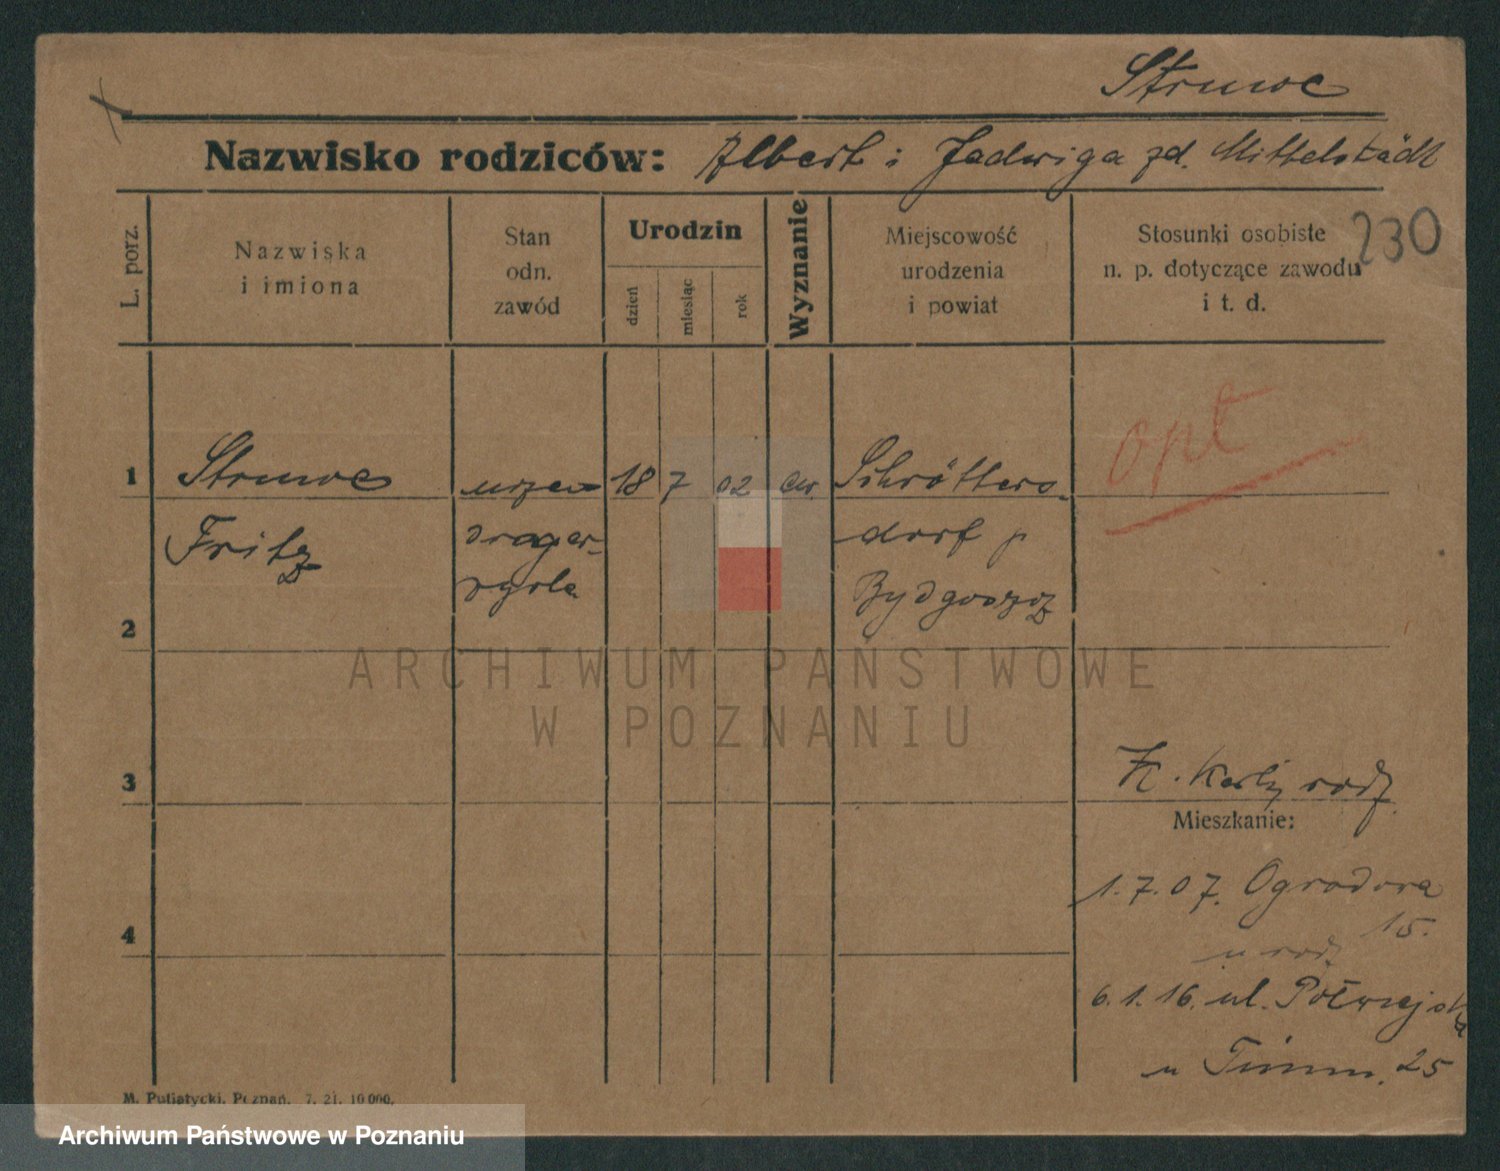 Struwe
Nazwisko rodziców: Albert i Jadwiga zd. Mittelstädt
230
L. porz.
Nazwiska
i imiona
Stan
odn.
zawód
Urodzin
dzień
miesiąc
rok
Wyznanie
Miejscowość
urodzenia
i powiat
Stosunki osobiste
n. p. dotyczące zawodu
i t. d.
opt
1 Struwe 18 7 02 ew. Schrötters-
Fritz dorf p
Bydgoszcz
2
ARCHIWUM PAŃSTWOWE
W POZNANIU
3
rodz.
Mieszkanie:
1.7.07. Ogrodowa
15.
4
u rodz
6.1.16. ul. Półwiejska
u Timm. 25
M. Putiatycki, Poznań. 7. 21. 10 000.
Archiwum Państwowe w Poznaniu